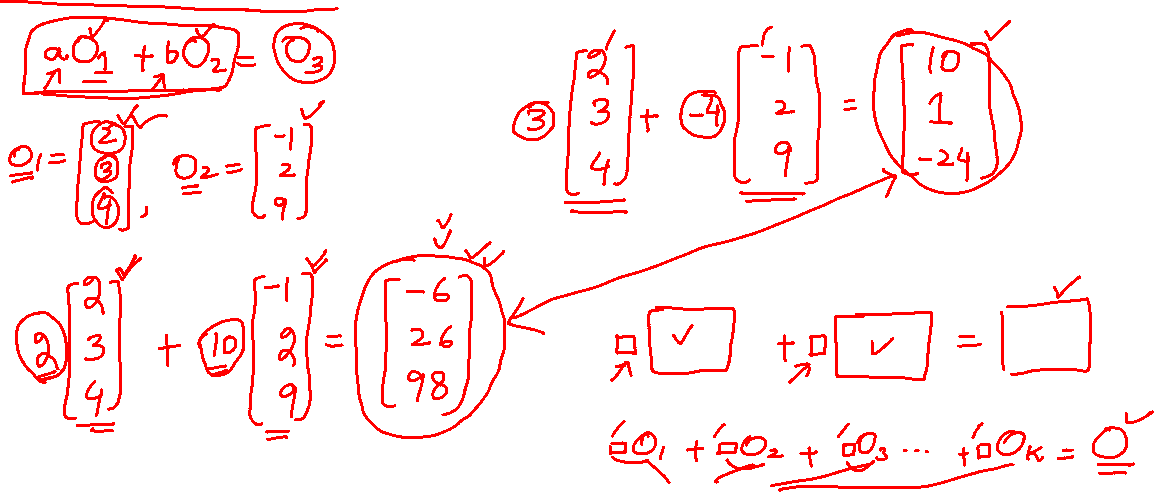 aO₁ + bO₂ = O₃
O₁ = [2 3 4], O₂ = [-1 2 9]
3 [2 3 4] + -4 [-1 2 9] = [10 1 -24]
2 [2 3 4] + 10 [-1 2 9] = [-6 26 98]
□ □ + □ □ = □
□O₁ + □O₂ + □O₃ ... + □Oₖ = O